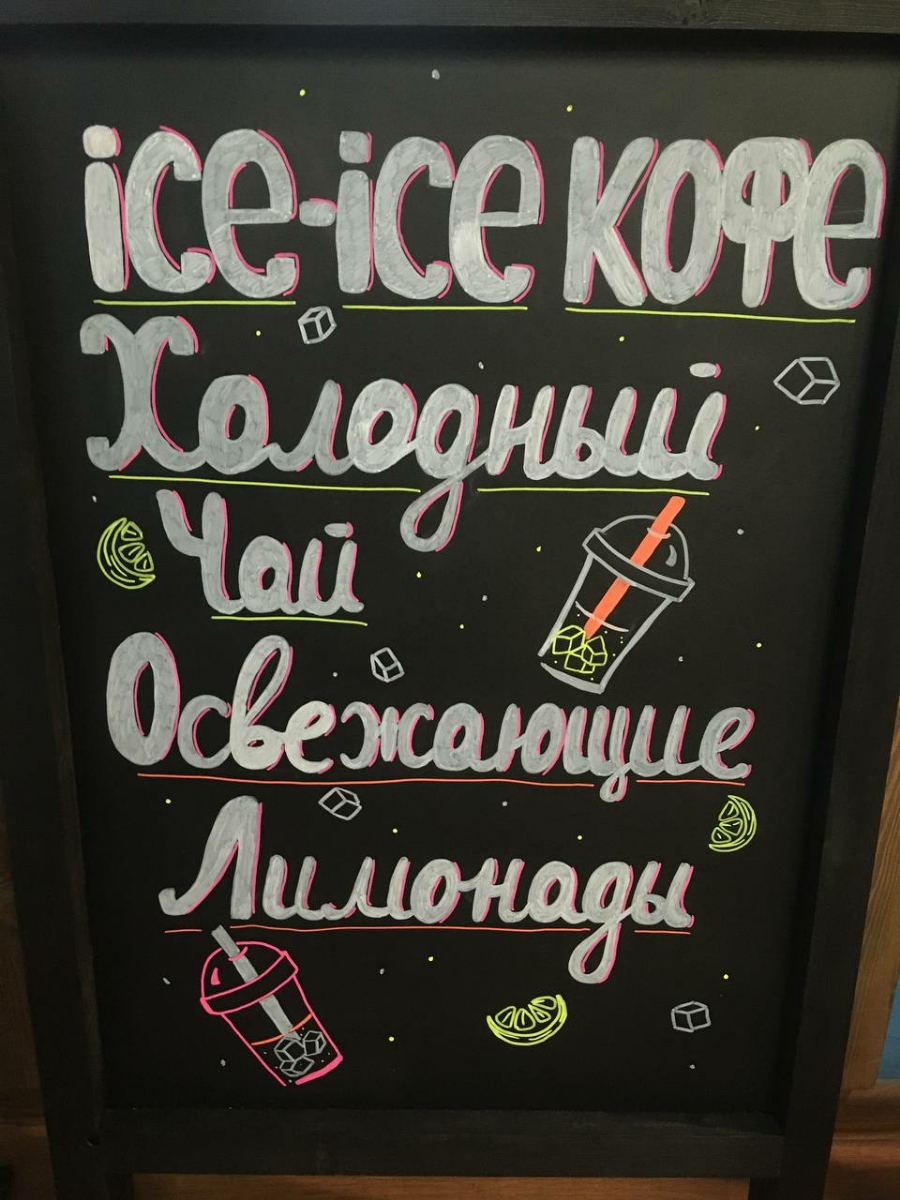 ice-ice кофе
Холодный
Чай
Освежающие
Лимонады